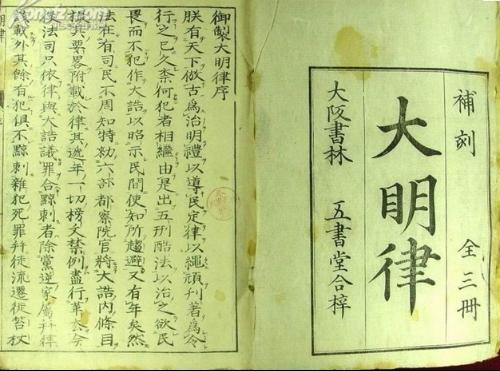 補刻 全三冊
大明律
大阪書林 五書堂合梓
御製大明律序
朕有天下倣古為治明禮以導民定律以繩頑刋著為令
行之已久柰何犯者相繼由是出五刑酷法以治之欲民
畏而不犯作大誥以昭示民間使知所趨避又有年矣然
法在有司民不周知特勑六部都察院官將大誥內條目
撮其要畧附載於律其遞年一切榜文禁例盡行革去今
後法司只依律與大誥議罪合黥刺者除黨逆家屬幷律
該載外其餘有犯俱不黥刺雜犯死罪幷徒流遷徙笞杖
明律